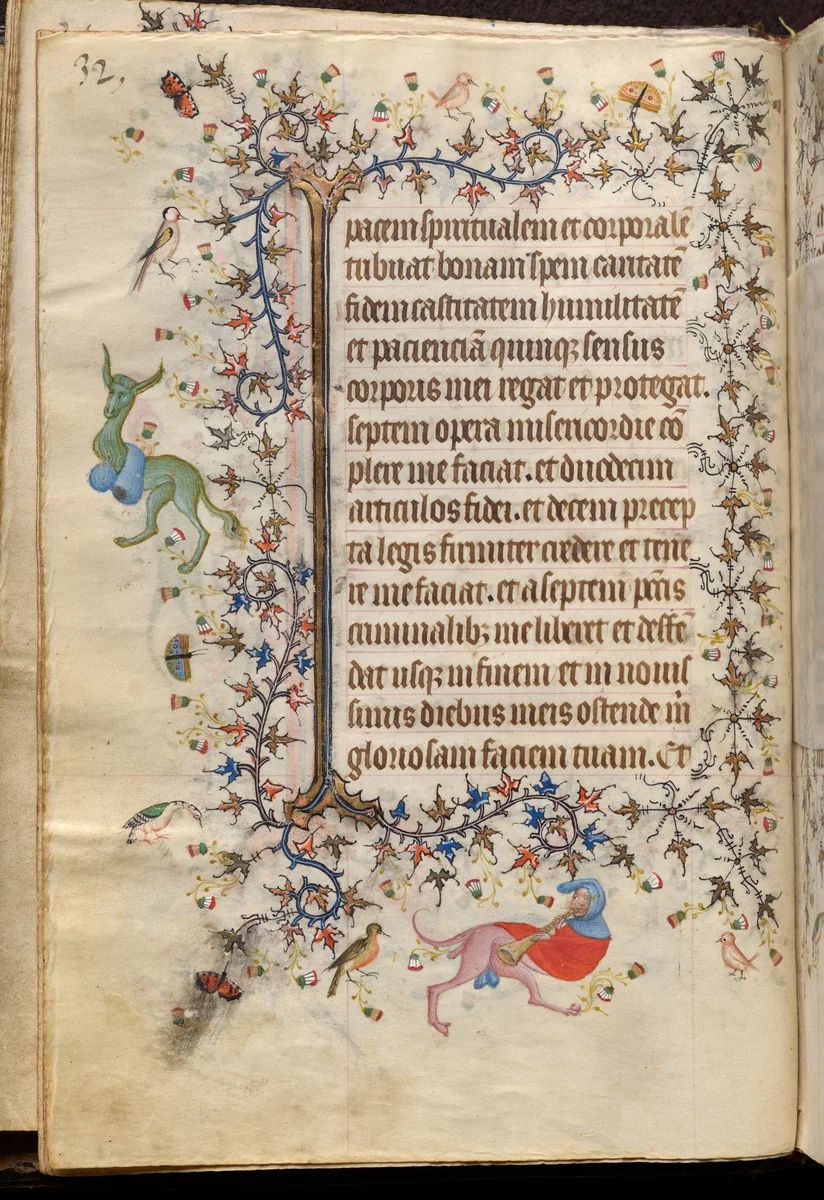 32,
pacem spiritualem et corporalē
tribuat bonam spem caritatē
fidem castitatem humilitatē
et pacienciā quinqꝫ sensus
corporis mei regat et protegat.
septem opera misericordie cō
plere me faciat. et duodecim
articulos fidei. et decem precep
ta legis firmiter credere et tene
re me faciat. et a septem pc̄tis
criminalibꝫ me liberet et deffē
dat usqꝫ in finem et in nouis
simis diebus meis ostende m̄
gloriosam faciem tuam. Et